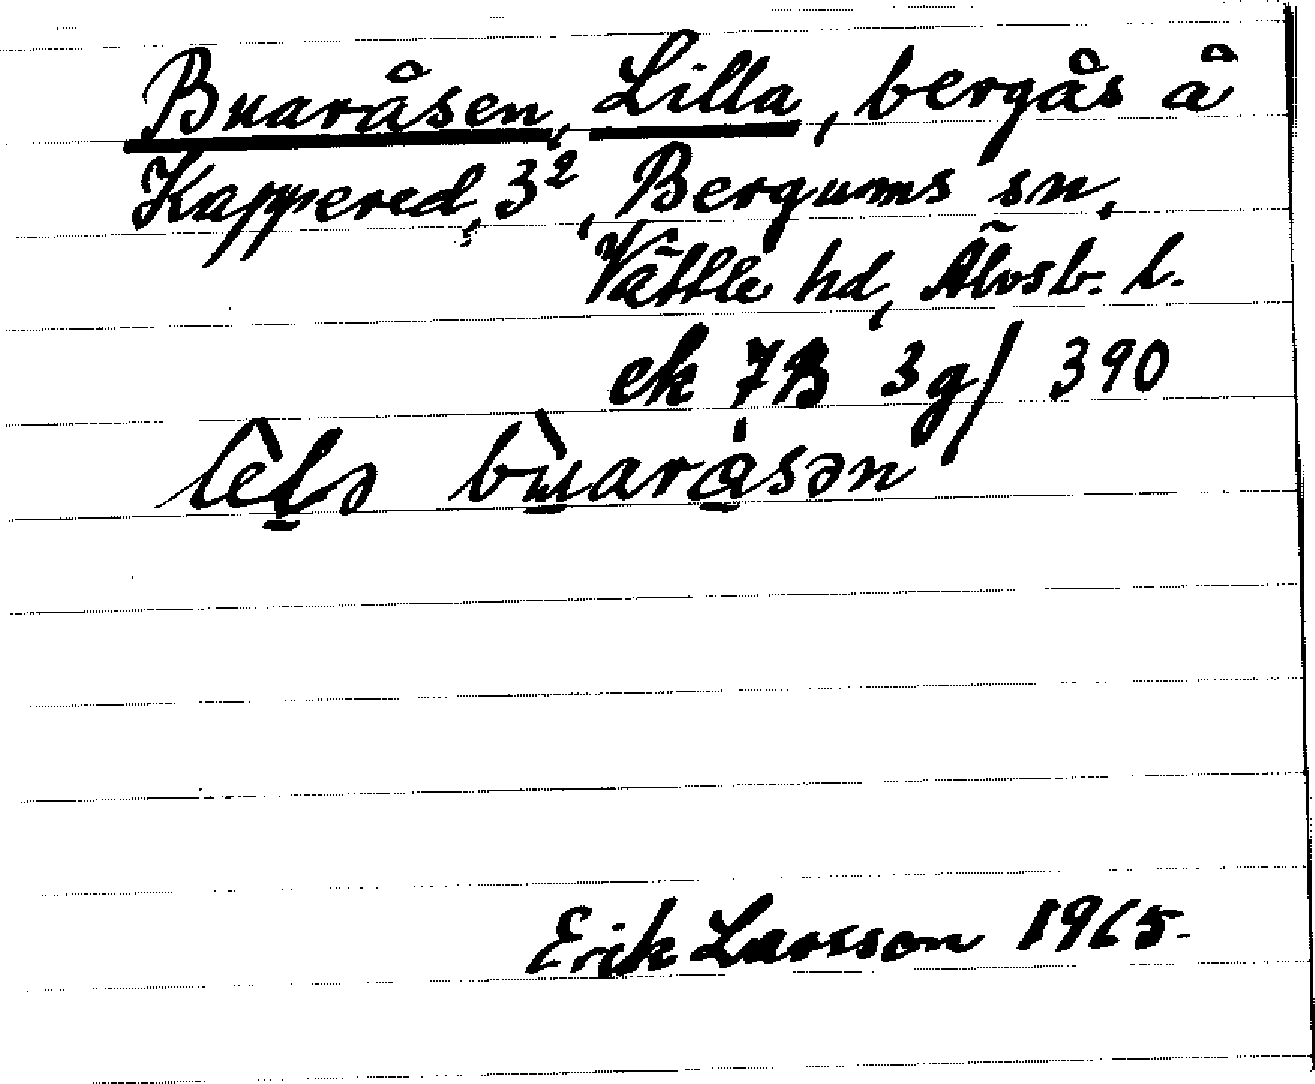 Buaråsen, Lilla, bergås å
Kappered, 3², Bergums sn,
Vättle hd, Älvsb. l.
ek 7B 3g/ 390
buaråsən
Erik Larsson 1965